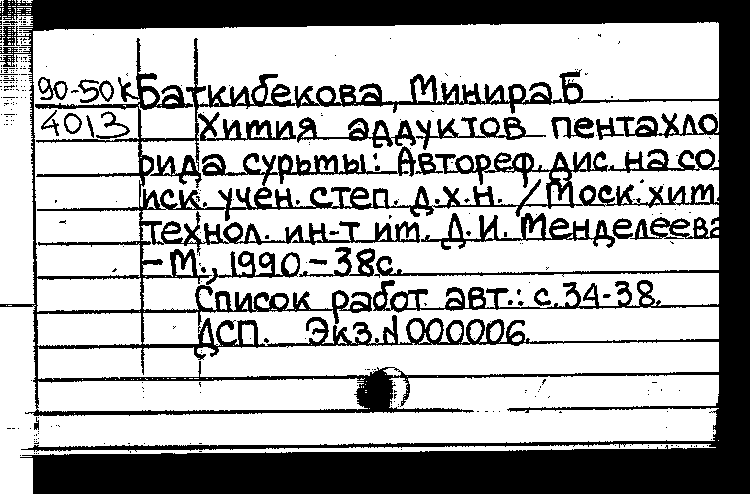 90-50К Баткибекова, Минира Б
4013 Химия аддуктов пентахло
рида сурьмы: Автореф. дис. на со
иск. учен. степ. д.х.н. / Моск. хим.
технол. ин-т им. Д.И. Менделеева
– М., 1990. – 38с.
Список работ авт.: с. 34-38.
ДСП. Экз. N 000006.